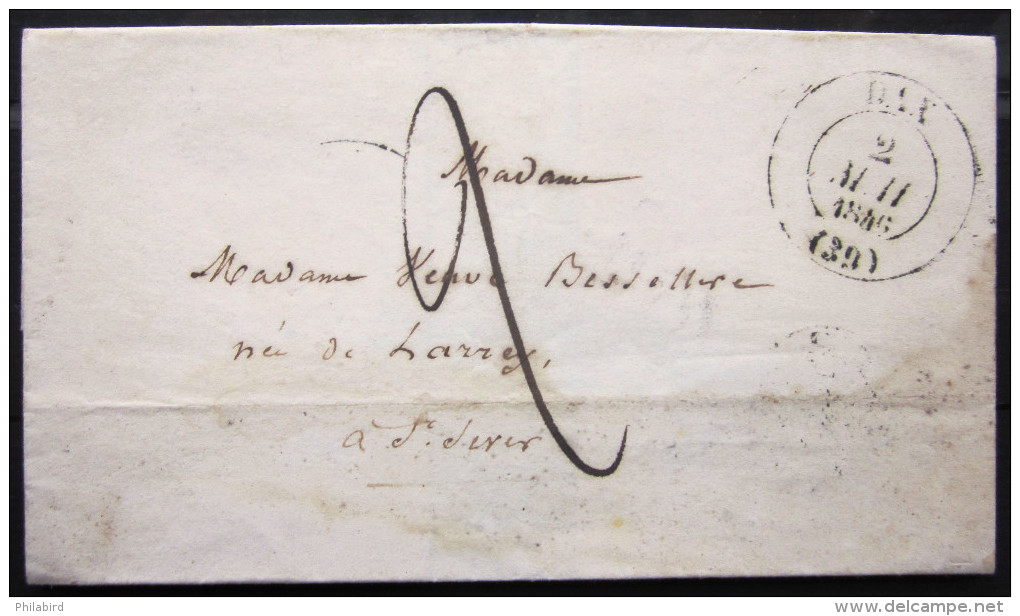 DAX
2
1846
(39)
Madame
Madame Veuve Bessellere
née de Larrey,
à St. Sever
Philabird
http://www.delcampe.net